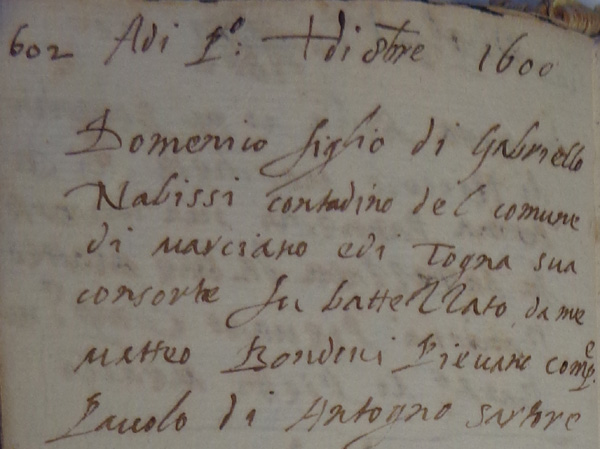 602 Adi P.º: + di 8bre 1600
Domenico figlio di Gabriello
Nabissi contadino del comune
di Marciano e di Togna sua
consorte fu battezzato da me
Matteo Bondeni Pievano comp.e
Pauolo di Antogno sartore